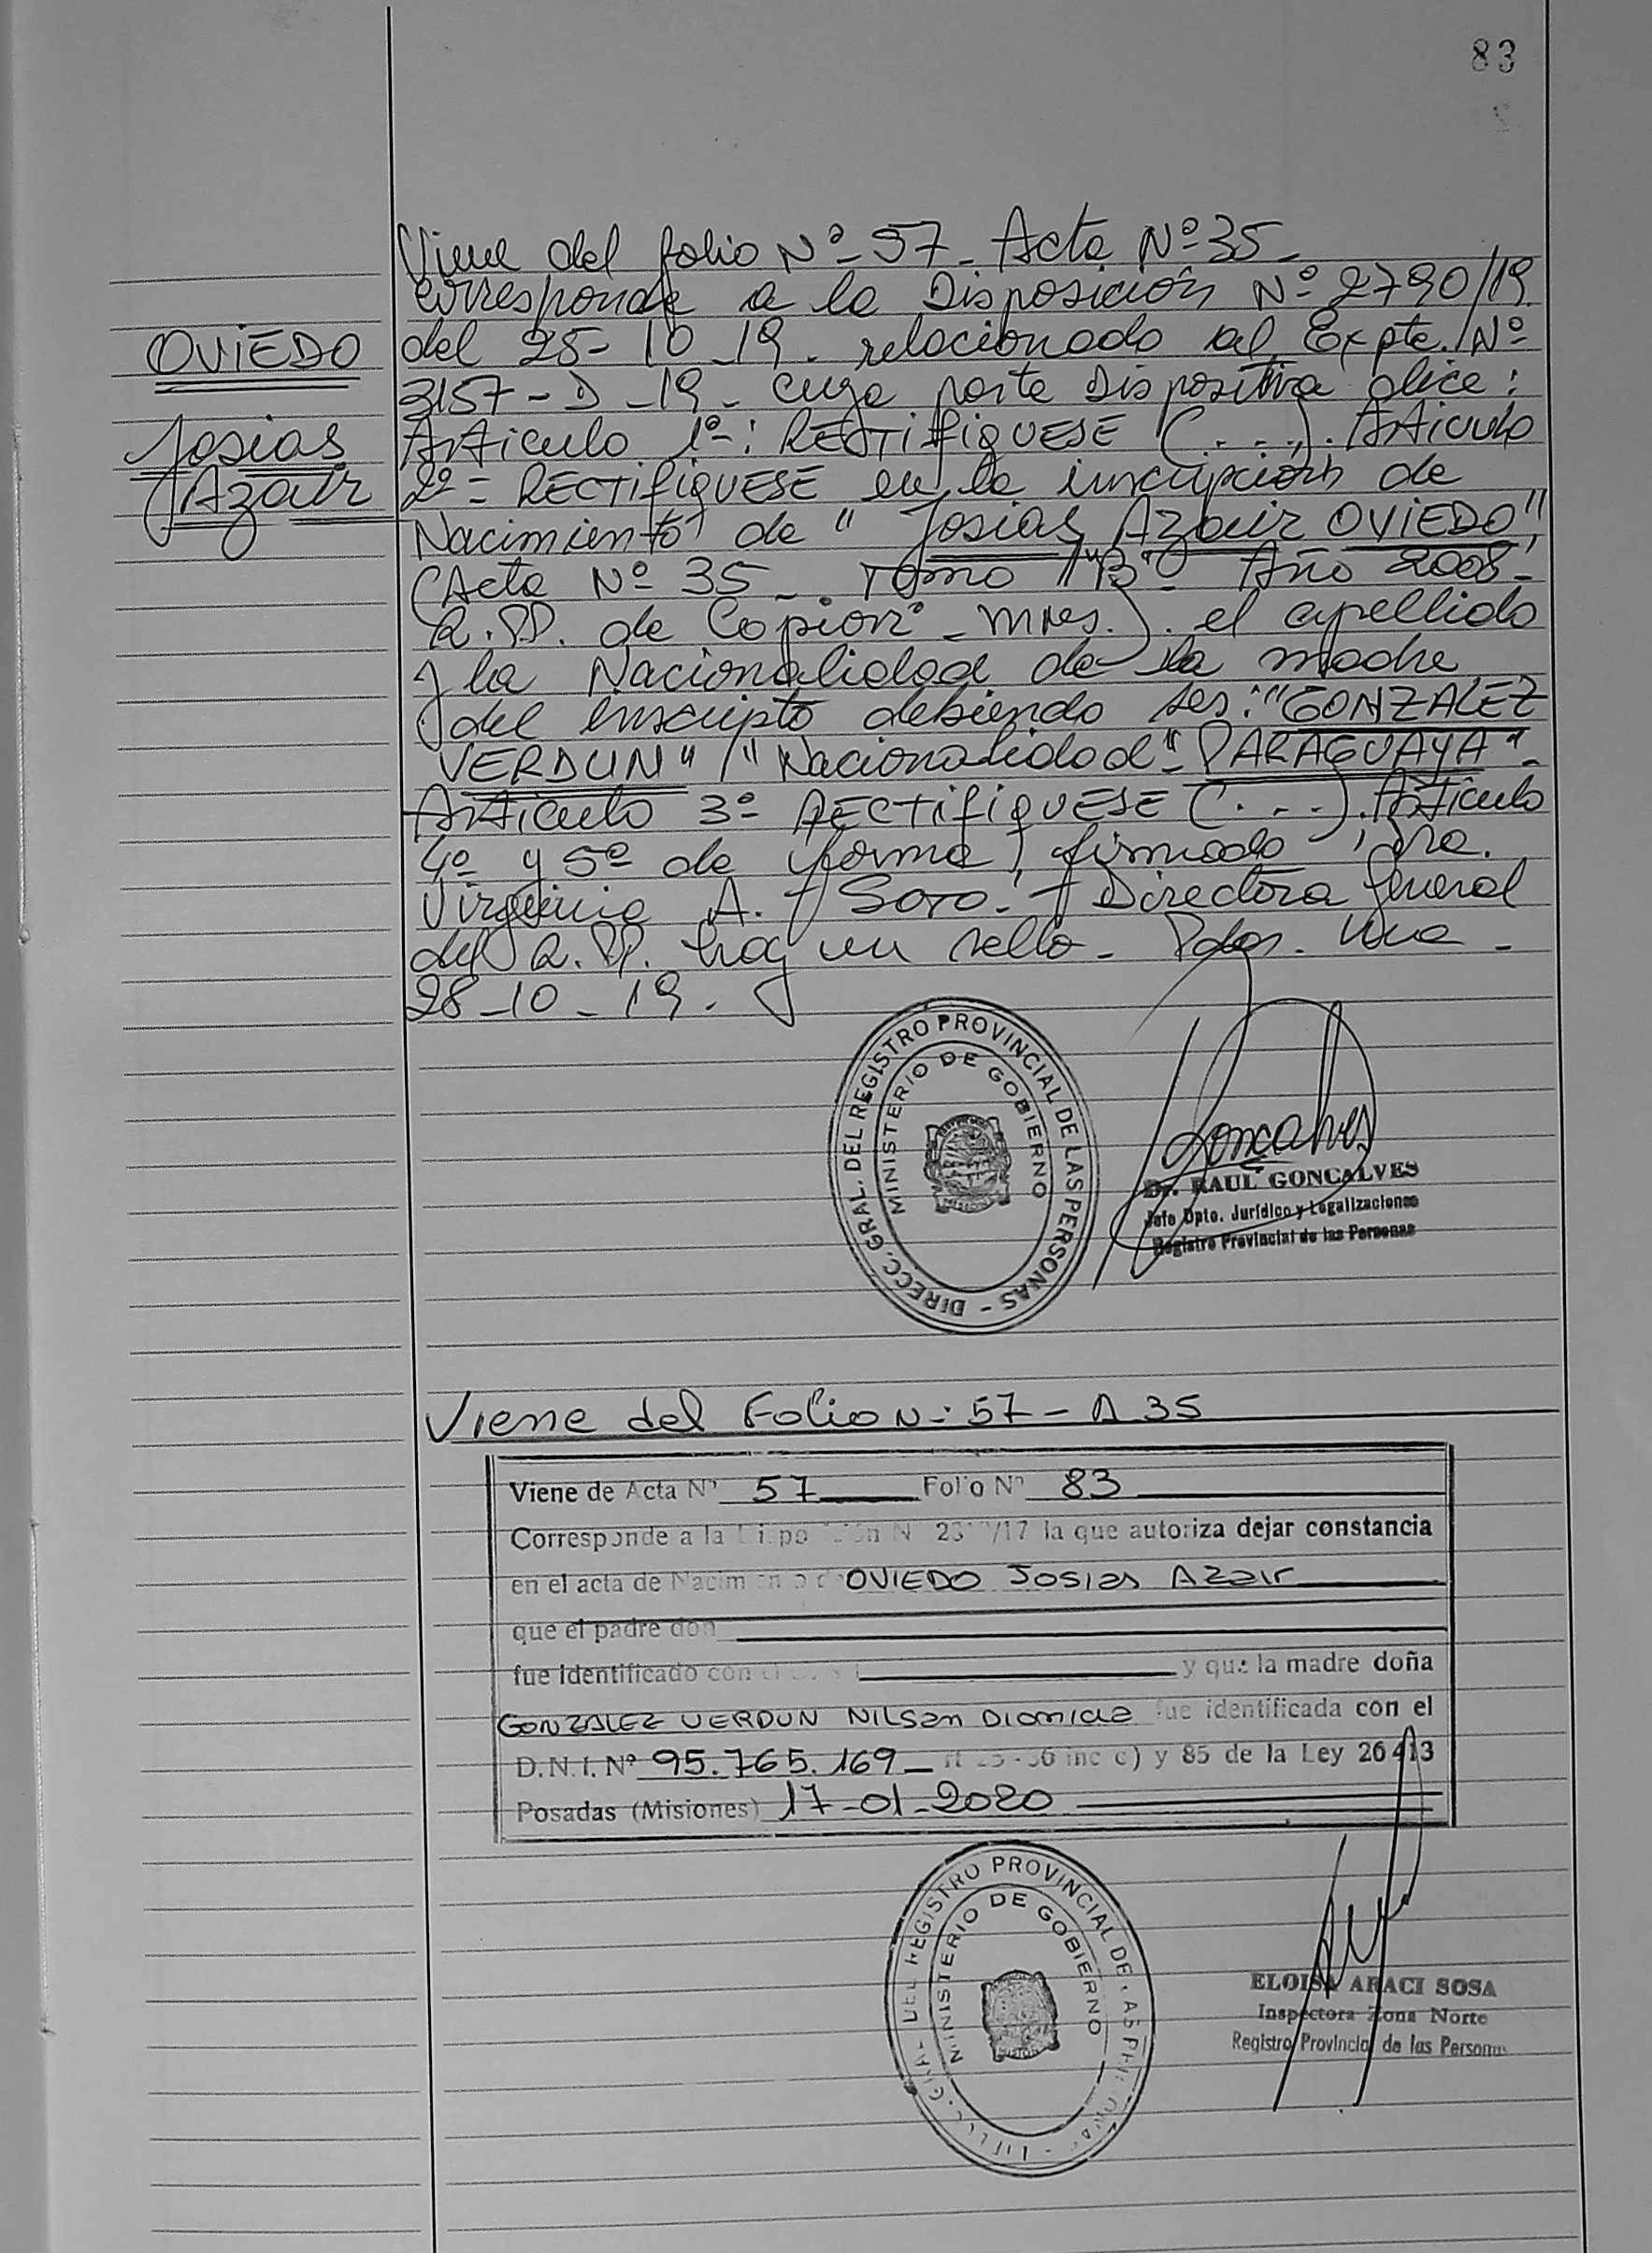 83
OVIEDO
Josias
Azair
Viene del folio Nº 57 - Acta Nº 35 -
corresponde a la Disposición Nº 2790/19
del 25-10-19. relacionado al Expte. Nº
3157-D-19- cuya parte Dispositiva dice:
Articulo 1º: RECTIFIQUESE (...). Articulo
2º = RECTIFIQUESE en la inscripción de
Nacimiento de "Josias Azair OVIEDO",
(Acta Nº 35 - Tomo 1"B" - Año 2008 -
R.PP. de - Mnes.). el apellido
y la Nacionalidad de la madre
del inscripto debiendo ser: "GONZALEZ
VERDUN" / "Nacionalidad" - PARAGUAYA" -
Articulo 3º RECTIFIQUESE (...). Articulo
4º y 5º de forma, firmado, Dra.
Virginia A. Soto - Directora General
del R.PP. hay un sello - Pdas. Mnes -
28-10-19.
DIRECC. GRAL. DEL REGISTRO PROVINCIAL DE LAS PERSONAS -
MINISTERIO DE GOBIERNO
Goncalves
Dr. RAUL GONÇALVES
Jefe Dpto. Jurídico y Legalizaciones
Registro Provincial de las Personas
Viene del Folio N: 57 - A 35
Viene de Acta Nº 57 Folio Nº 83
Corresponde a la /17 la que autoriza dejar constancia
en el acta de OVIEDO Josias Azair
que el padre don
fue identificado con y que la madre doña
GONZALEZ VERDUN Nilsan Dionicia fue identificada con el
D.N.I. Nº 95.765.169 inc c) y 85 de la Ley 26413
Posadas (Misiones) 17-01-2020
DEL REGISTRO PROVINCIAL DE
MINISTERIO DE GOBIERNO
ELOISA ARACI SOSA
Inspectora Zona Norte
Registro Provincial de las Personas